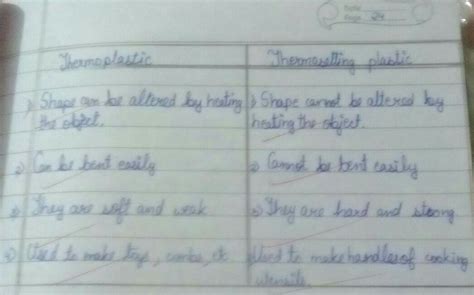 Date
Page 24
Thermoplastic Thermosetting plastic
1) Shape can be altered by heating 1) Shape cannot be altered by
the object. heating the object.
2) Can be bent easily 2) Cannot be bent easily
3) They are soft and weak 3) They are hard and strong
4) Used to make toys, combs, etc Used to make handles of cooking
utensils.